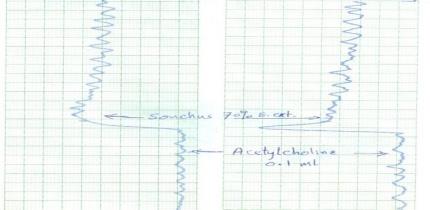 Sonchus 70% E. ext.
Acetylcholine
0.1 ml